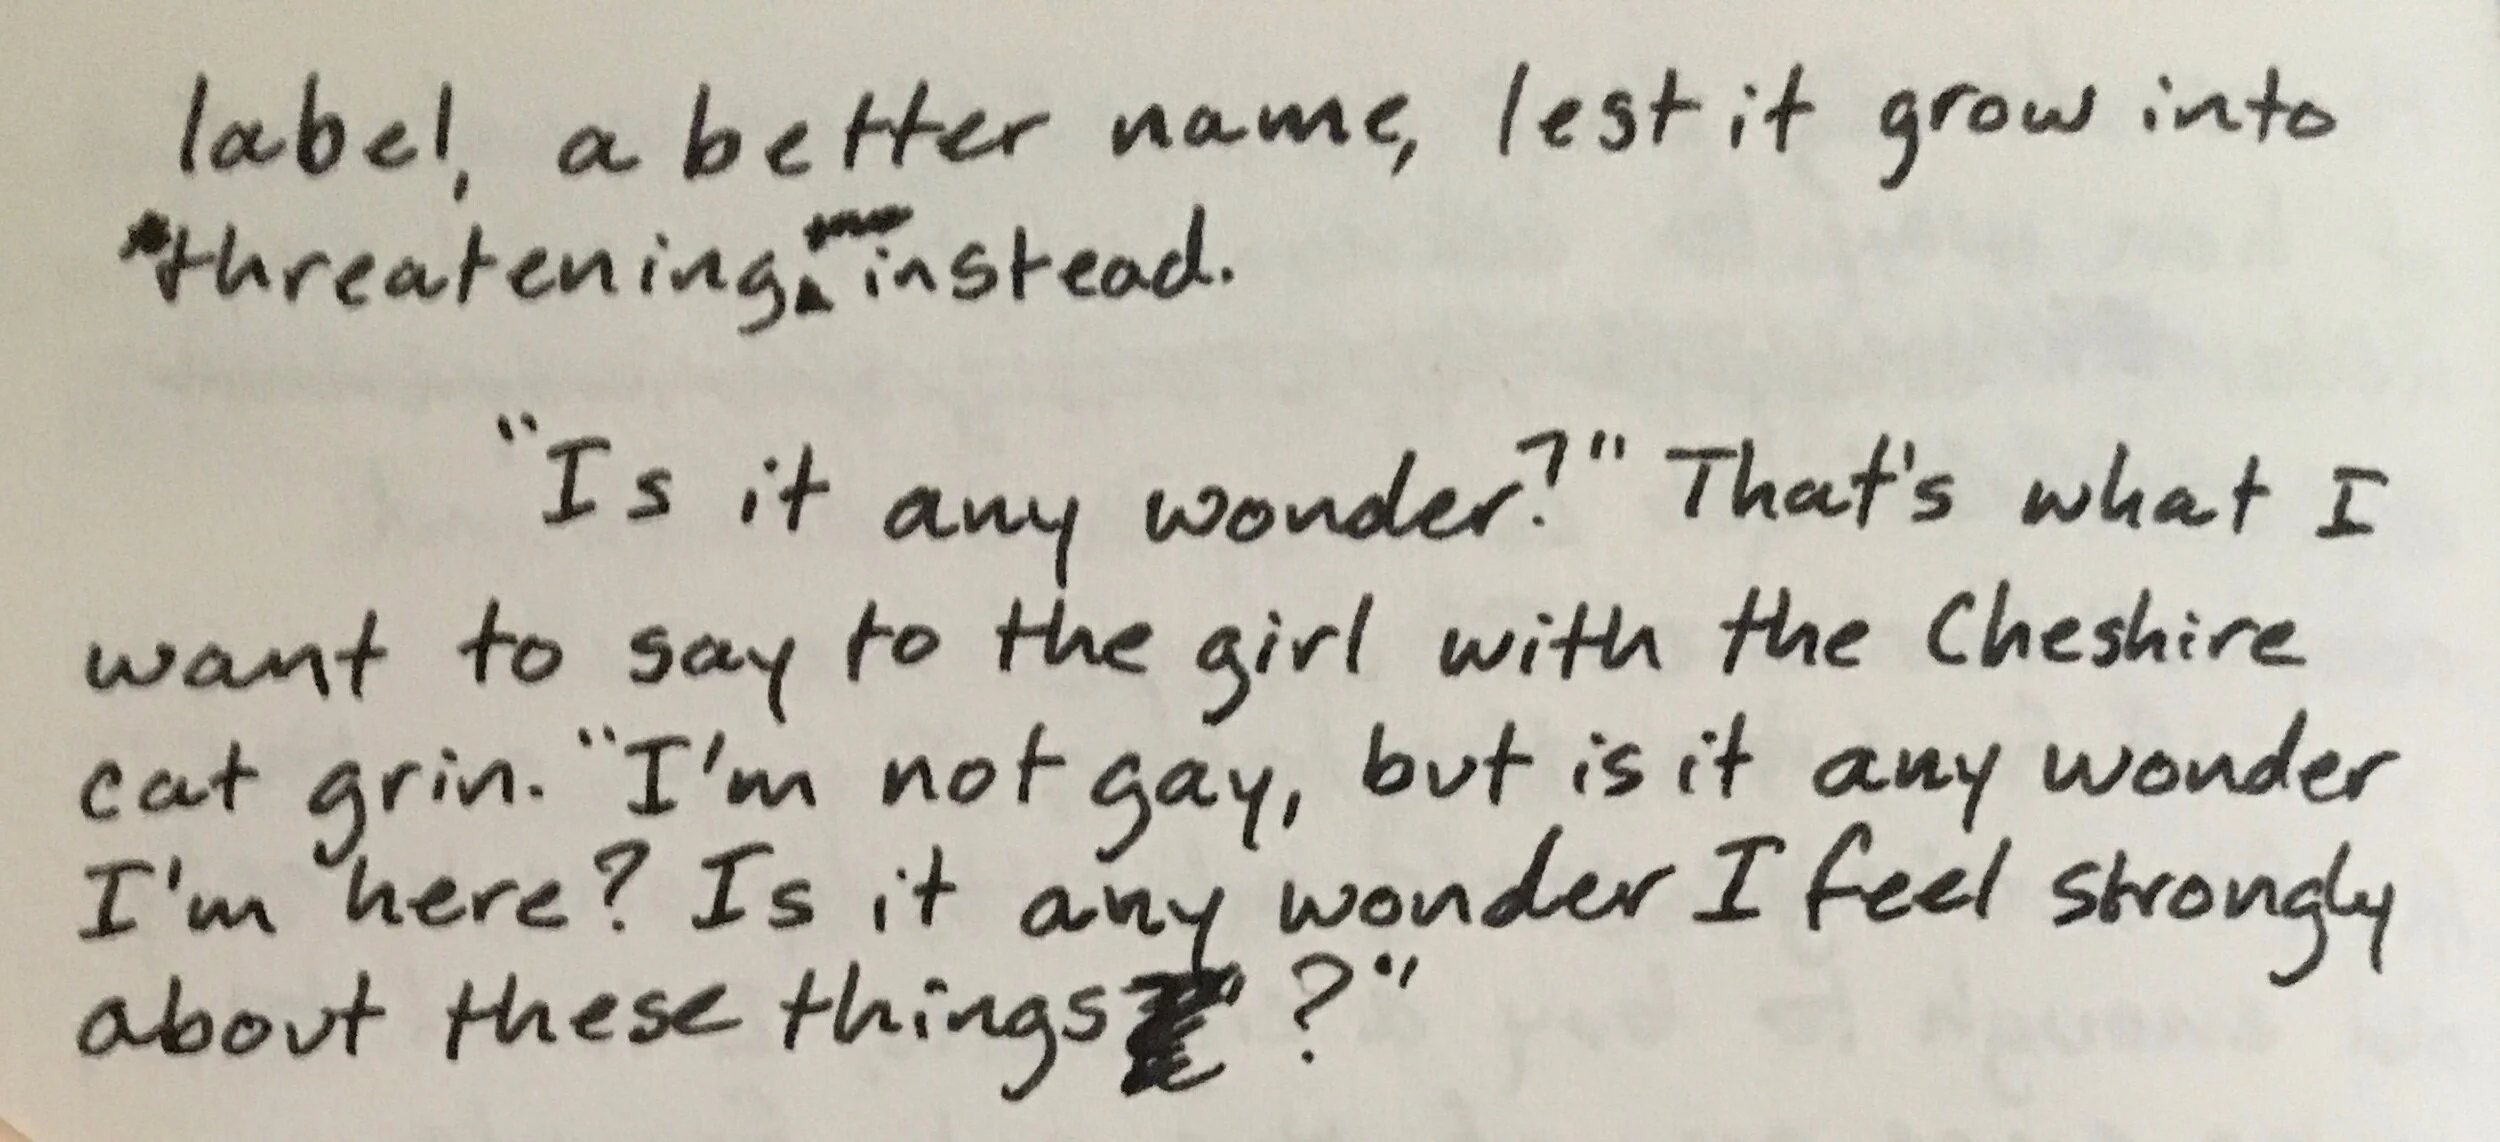 label, a better name, lest it grow into
threatening instead.
"Is it any wonder?" That's what I
want to say to the girl with the Cheshire
cat grin. "I'm not gay, but is it any wonder
I'm here? Is it any wonder I feel strongly
about these things?"